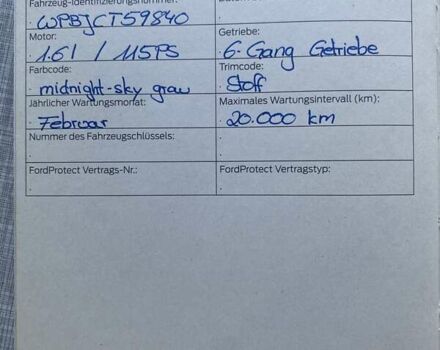 Fahrzeug-Identifizierungsnummer:
WPBJCT59840
Motor: Getriebe:
1.6l / 115PS 6-Gang Getriebe
Farbcode: Trimcode:
midnight-sky grau Stoff
Jährlicher Wartungsmonat: Maximales Wartungsintervall (km):
Februar 20.000 km
Nummer des Fahrzeugschlüssels:
FordProtect Vertrags-Nr.: FordProtect Vertragstyp: